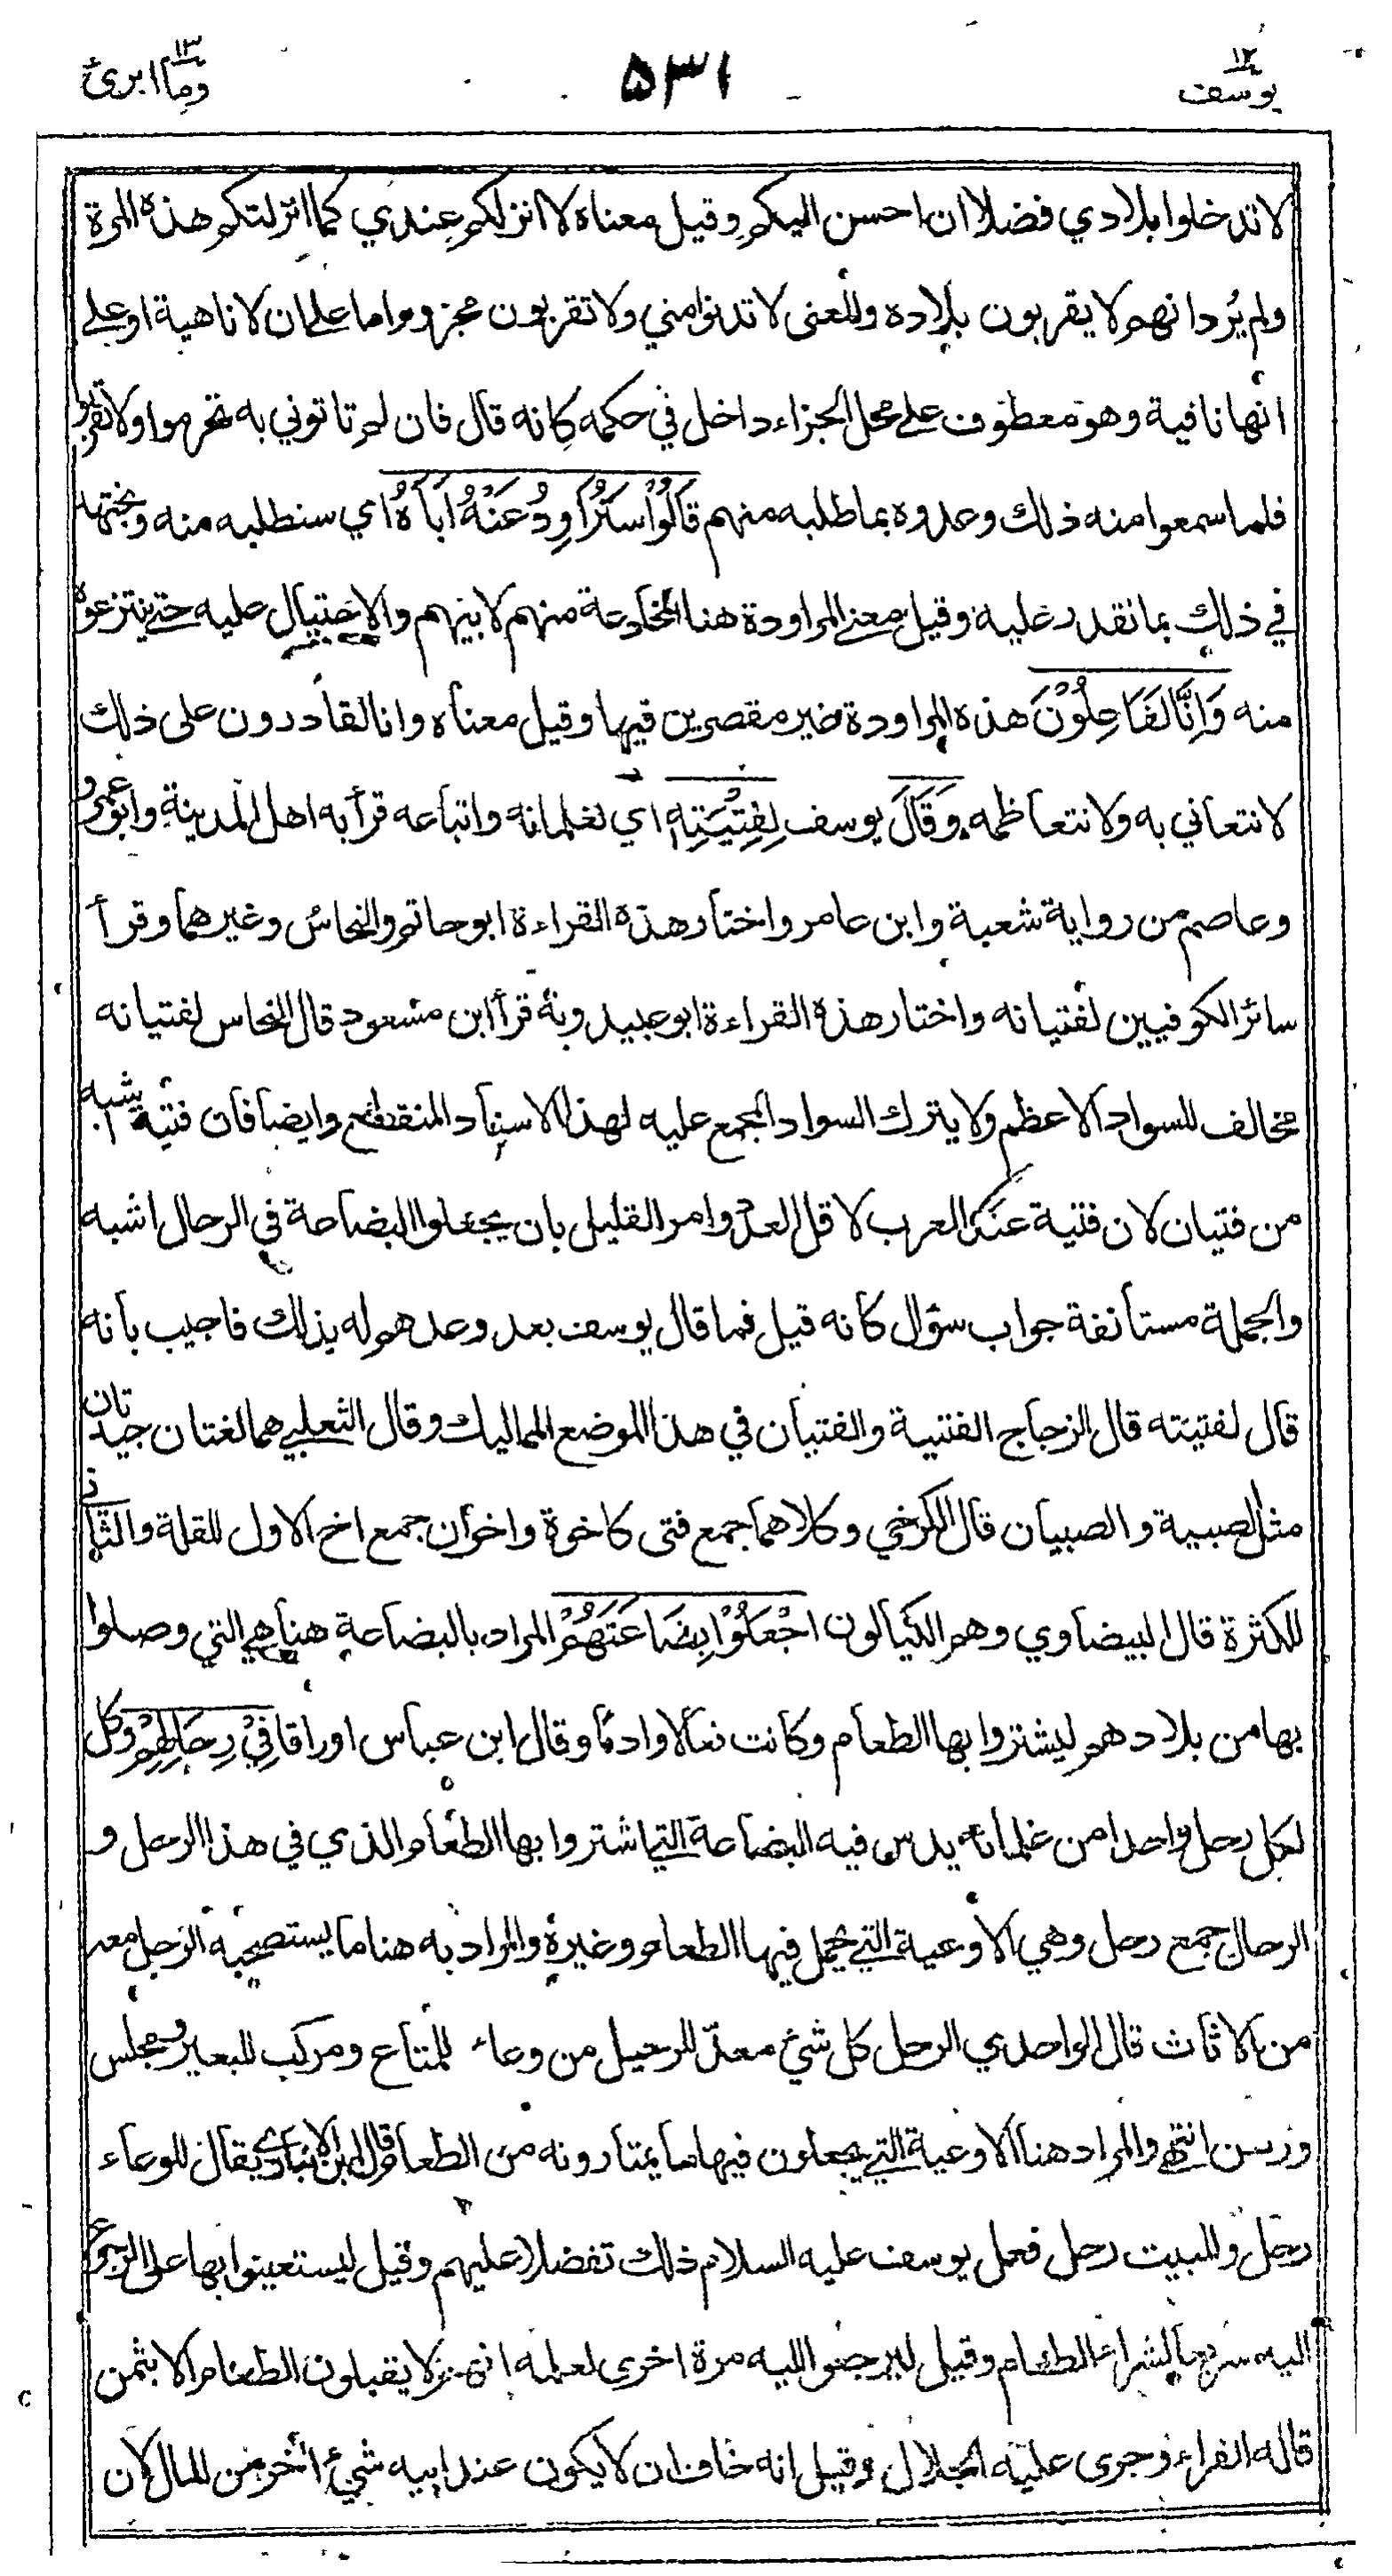 يوسف ١٢
٥٣١
وما ابرئ ١٣
لا تدخلوا بلادي فضلا ان احسن اليكم وقيل معناه لا انزلكم عندي كما انزلتكم هذه المرة
ولم يُرد انهم لا يقربون بلاده والمعنى لا تدنوا مني ولا تقربون مجزوم اما على ان لا ناهية او على
انها نافية وهو معطوف على محل الجزاء داخل في حكمه كانه قال فان لم تاتوني به تحرموا ولا تقربوا
فلما سمعوا منه ذلك وعدوه بما طلبه منهم قَالُوْا سَنُرَاوِدُ عَنْهُ اَبَاهُ اي سنطلبه منه ونجتهد
في ذلك بما نقدر عليه وقيل معنى المراودة هنا المخادعة منهم لابيهم والاحتيال عليه حتى ينتزعوه
منه وَاِنَّا لَفَاعِلُوْنَ هذه المراودة غير مقصرين فيها وقيل معناه وانا لقادرون على ذلك
لا نتعاني به ولا نتعاظمه وَقَالَ يوسف لِفِتْيَتِهِ اي لغلمانه واتباعه قرأ به اهل المدينة وابو عمرو
وعاصم من رواية شعبة وابن عامر واختار هذه القراءة ابو حاتم والنحاس وغيرهما وقرأ
سائر الكوفيين لفتيانه واختار هذه القراءة ابو عبيد وبه قرأ ابن مسعود قال النحاس لفتيانه
مخالف للسواد الاعظم ولا يترك السواد المجمع عليه لهذا الاسناد المنقطع وايضا فان فتية اشبه
من فتيان لان فتية عند العرب لاقل العدد وامر القليل بان يجعلوا البضاعة في الرحال اشبه
والجملة مستأنفة جواب سؤال كانه قيل فما قال يوسف بعد وعدهم له بذلك فاجيب بانه
قال لفتيته قال الزجاج الفتية والفتيان في هذا الموضع المماليك وقال الثعلبي هما لغتان جيدتان
مثل الصبية والصبيان قال الكرخي وكلاهما جمع فتى كاخوة واخوان جمع اخ الاول للقلة والثاني
للكثرة قال البيضاوي وهم الكيالون اجْعَلُوْا بِضَاعَتَهُمْ المراد بالبضاعة هنا هي التي وصلوا
بها من بلادهم ليشتروا بها الطعام وكانت نعالا وادما وقال ابن عباس اوراقا فِيْ رِحَالِهِمْ وكل
لكل رحل واحدا من غلمانه يدس فيه البضاعة التي اشتروا بها الطعام الذي في هذا الرحل و
الرحال جمع رحل وهي الاوعية التي يحمل فيها الطعام وغيره والمراد به هنا ما يستصحبه الرجل معه
من الاثاث قال الواحدي الرحل كل شئ معدّ للرحيل من وعاء للمتاع ومركب للبعير ومجلس
ورسن انتهى والمراد هنا الاوعية التي يجعلون فيها ما يمتارونه من الطعام قال ابن الانباري يقال للوعاء
رحل وللبيت رحل فعمل يوسف عليه السلام ذلك تفضلا عليهم وقيل ليستعينوا بها على الرجوع
اليه سريعا لشراء الطعام وقيل ليرجعوا اليه مرة اخرى لعلمه انهم لا يقبلون الطعام الا بثمن
قاله الفراء وجرى عليه الجلال وقيل انه خاف ان لا يكون عند ابيه شيء اخر من المال لان